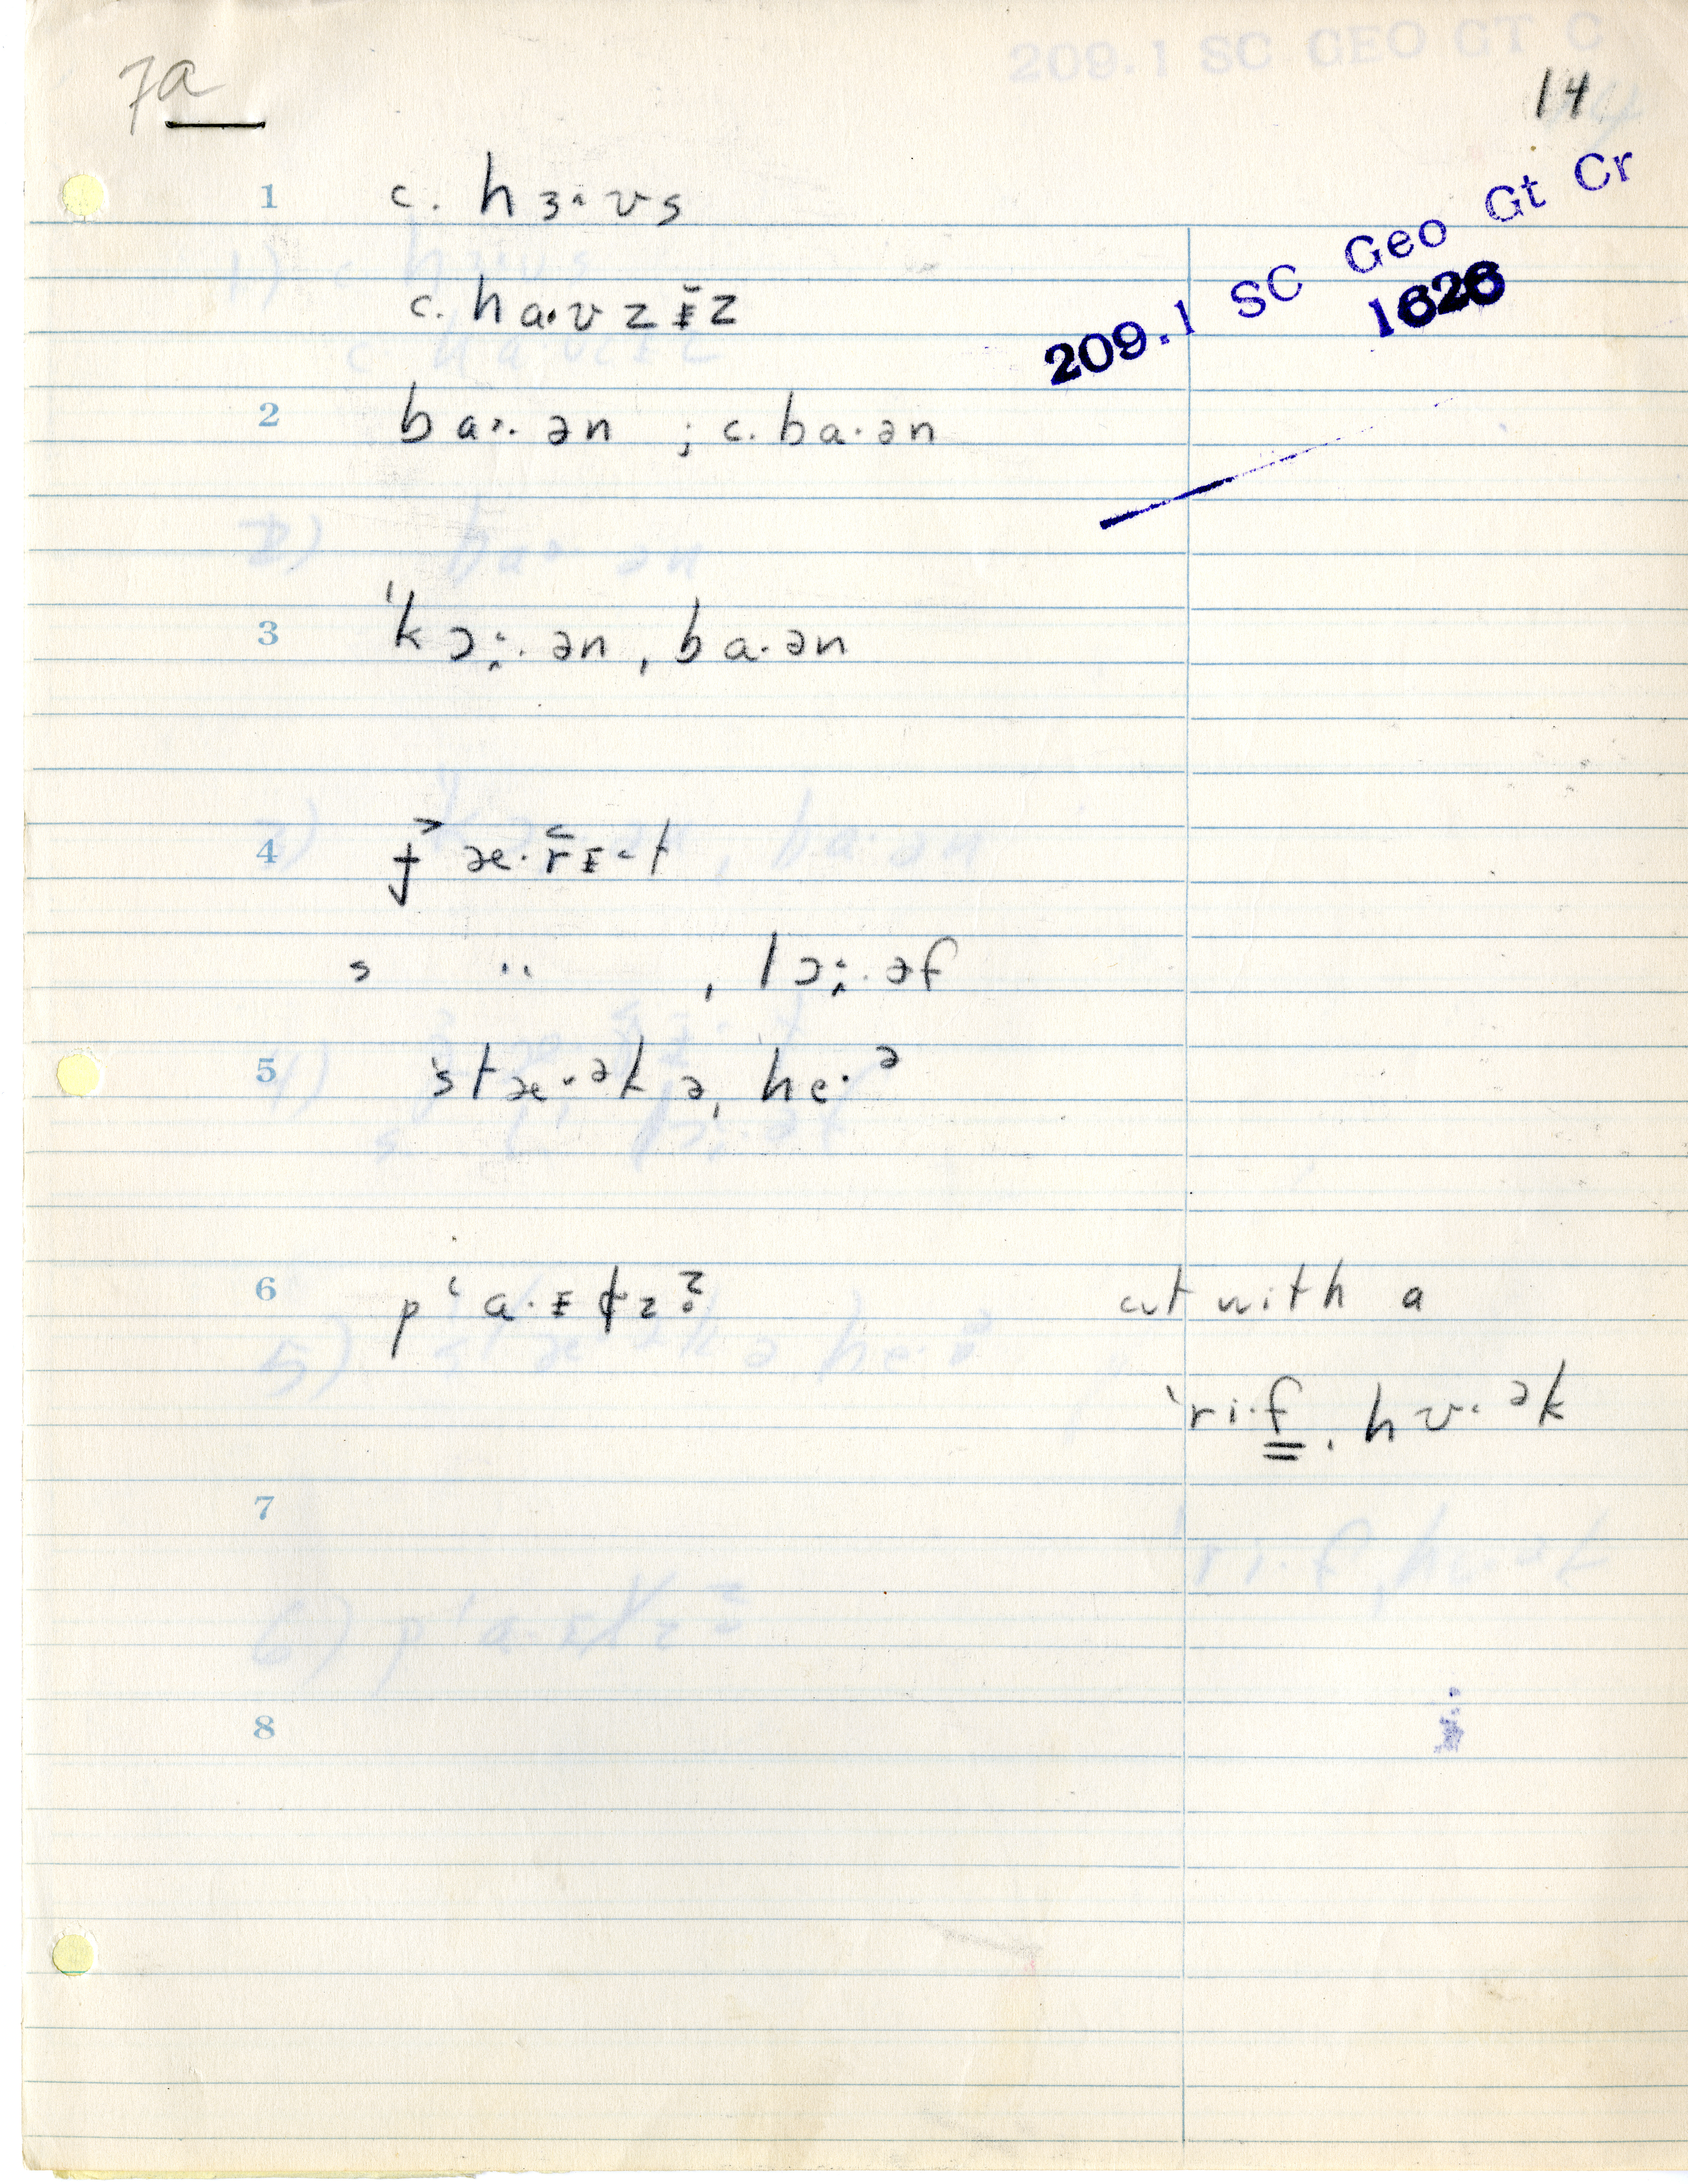 7a
14
209.1 SC Geo Gt Cr
1626
1 c. hɜ˄ʊs
c. ha·ʊzɪ̵̆z
2 ba˃·ən ; c. ba·ən
3 ˈkɔ˔·ən ˌba·ən
4 ɟ˃ æ·r̆ɪ̵˂t
s " ˌlɔ˔·əf
5 ˈstæ·ᵊk ə ˌhe·ᵊ
6 pʻa·ɪ̵ɫz̥ᶻ
cut with a
ˈri·f ˌhʊ˂·ᵊk
7
8